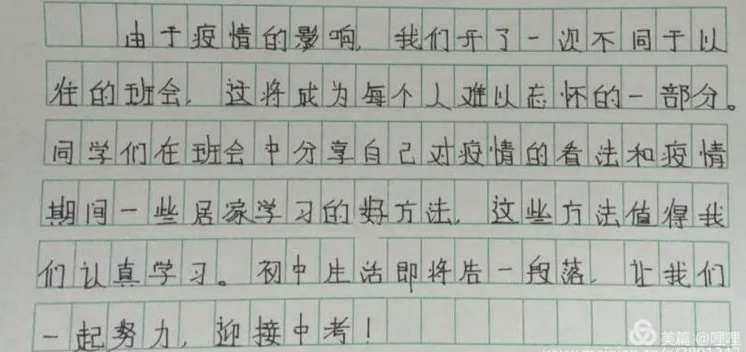 由于疫情的影响,我们开了一次不同于以
往的班会,这将成为每个人难以忘怀的一部分。
同学们在班会中分享自己对疫情的看法和疫情
期间一些居家学习的好方法,这些方法值得我
们认真学习。初中生活即将告一段落,让我们
一起努力,迎接中考!
美篇@哩哩